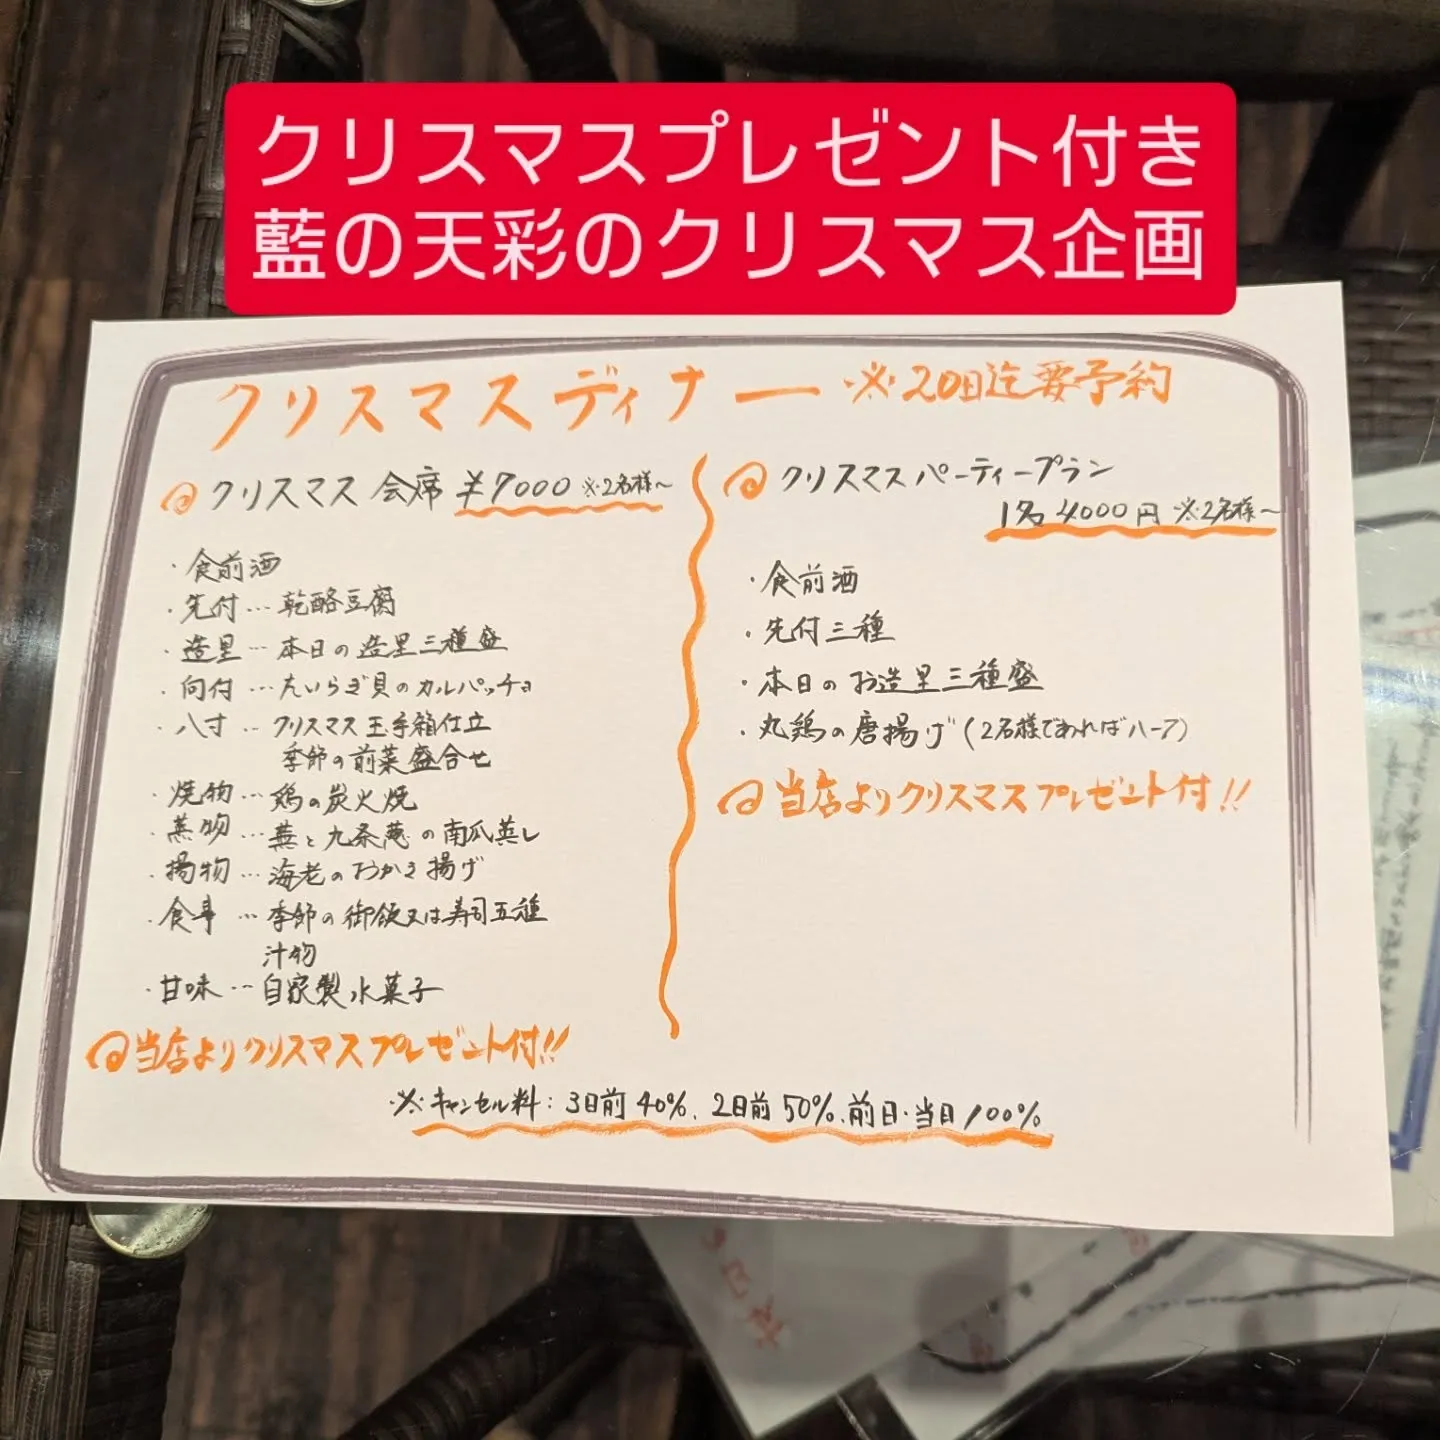 クリスマスプレゼント付き
藍の天彩のクリスマス企画
クリスマスディナー ※20日迄要予約
クリスマス会席 ¥7000 ※2名様～
・食前酒
・先付…乾酪豆腐
・造里…本日の造里三種盛
・向付…たいらぎ貝のカルパッチョ
・八寸…クリスマス玉手箱仕立
季節の前菜盛合せ
・焼物…鶏の炭火焼
・蒸物…蕪と九条葱の南瓜蒸し
・揚物…海老のおかき揚げ
・食事…季節の御飯又は寿司五種
汁物
・甘味…自家製水菓子
当店よりクリスマスプレゼント付!!
クリスマスパーティープラン
1名4000円 ※2名様～
・食前酒
・先付三種
・本日のお造里三種盛
・丸鶏の唐揚げ(2名様であればハーフ)
当店よりクリスマスプレゼント付!!
※キャンセル料:3日前40%、2日前50%、前日・当日100%